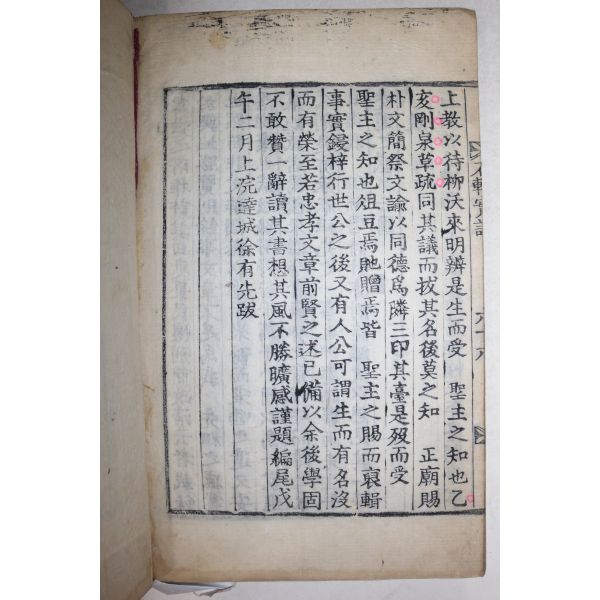 上教以待柳沃來明辨是生而受 聖主之知也乙
亥剛泉草疏同其議而拔其名後莫之知 正廟賜
朴文簡祭文諭以同德爲隣三印其臺是歿而受
聖主之知也俎豆焉貤贈焉皆 聖主之賜而裒輯
事實鋟梓行世公之後又有人公可謂生而有名沒
而有榮至若忠孝文章前賢之述已備以余後學固
不敢贊一辭讀其書想其風不勝曠感謹題編尾戊
午二月上浣達城徐有先跋